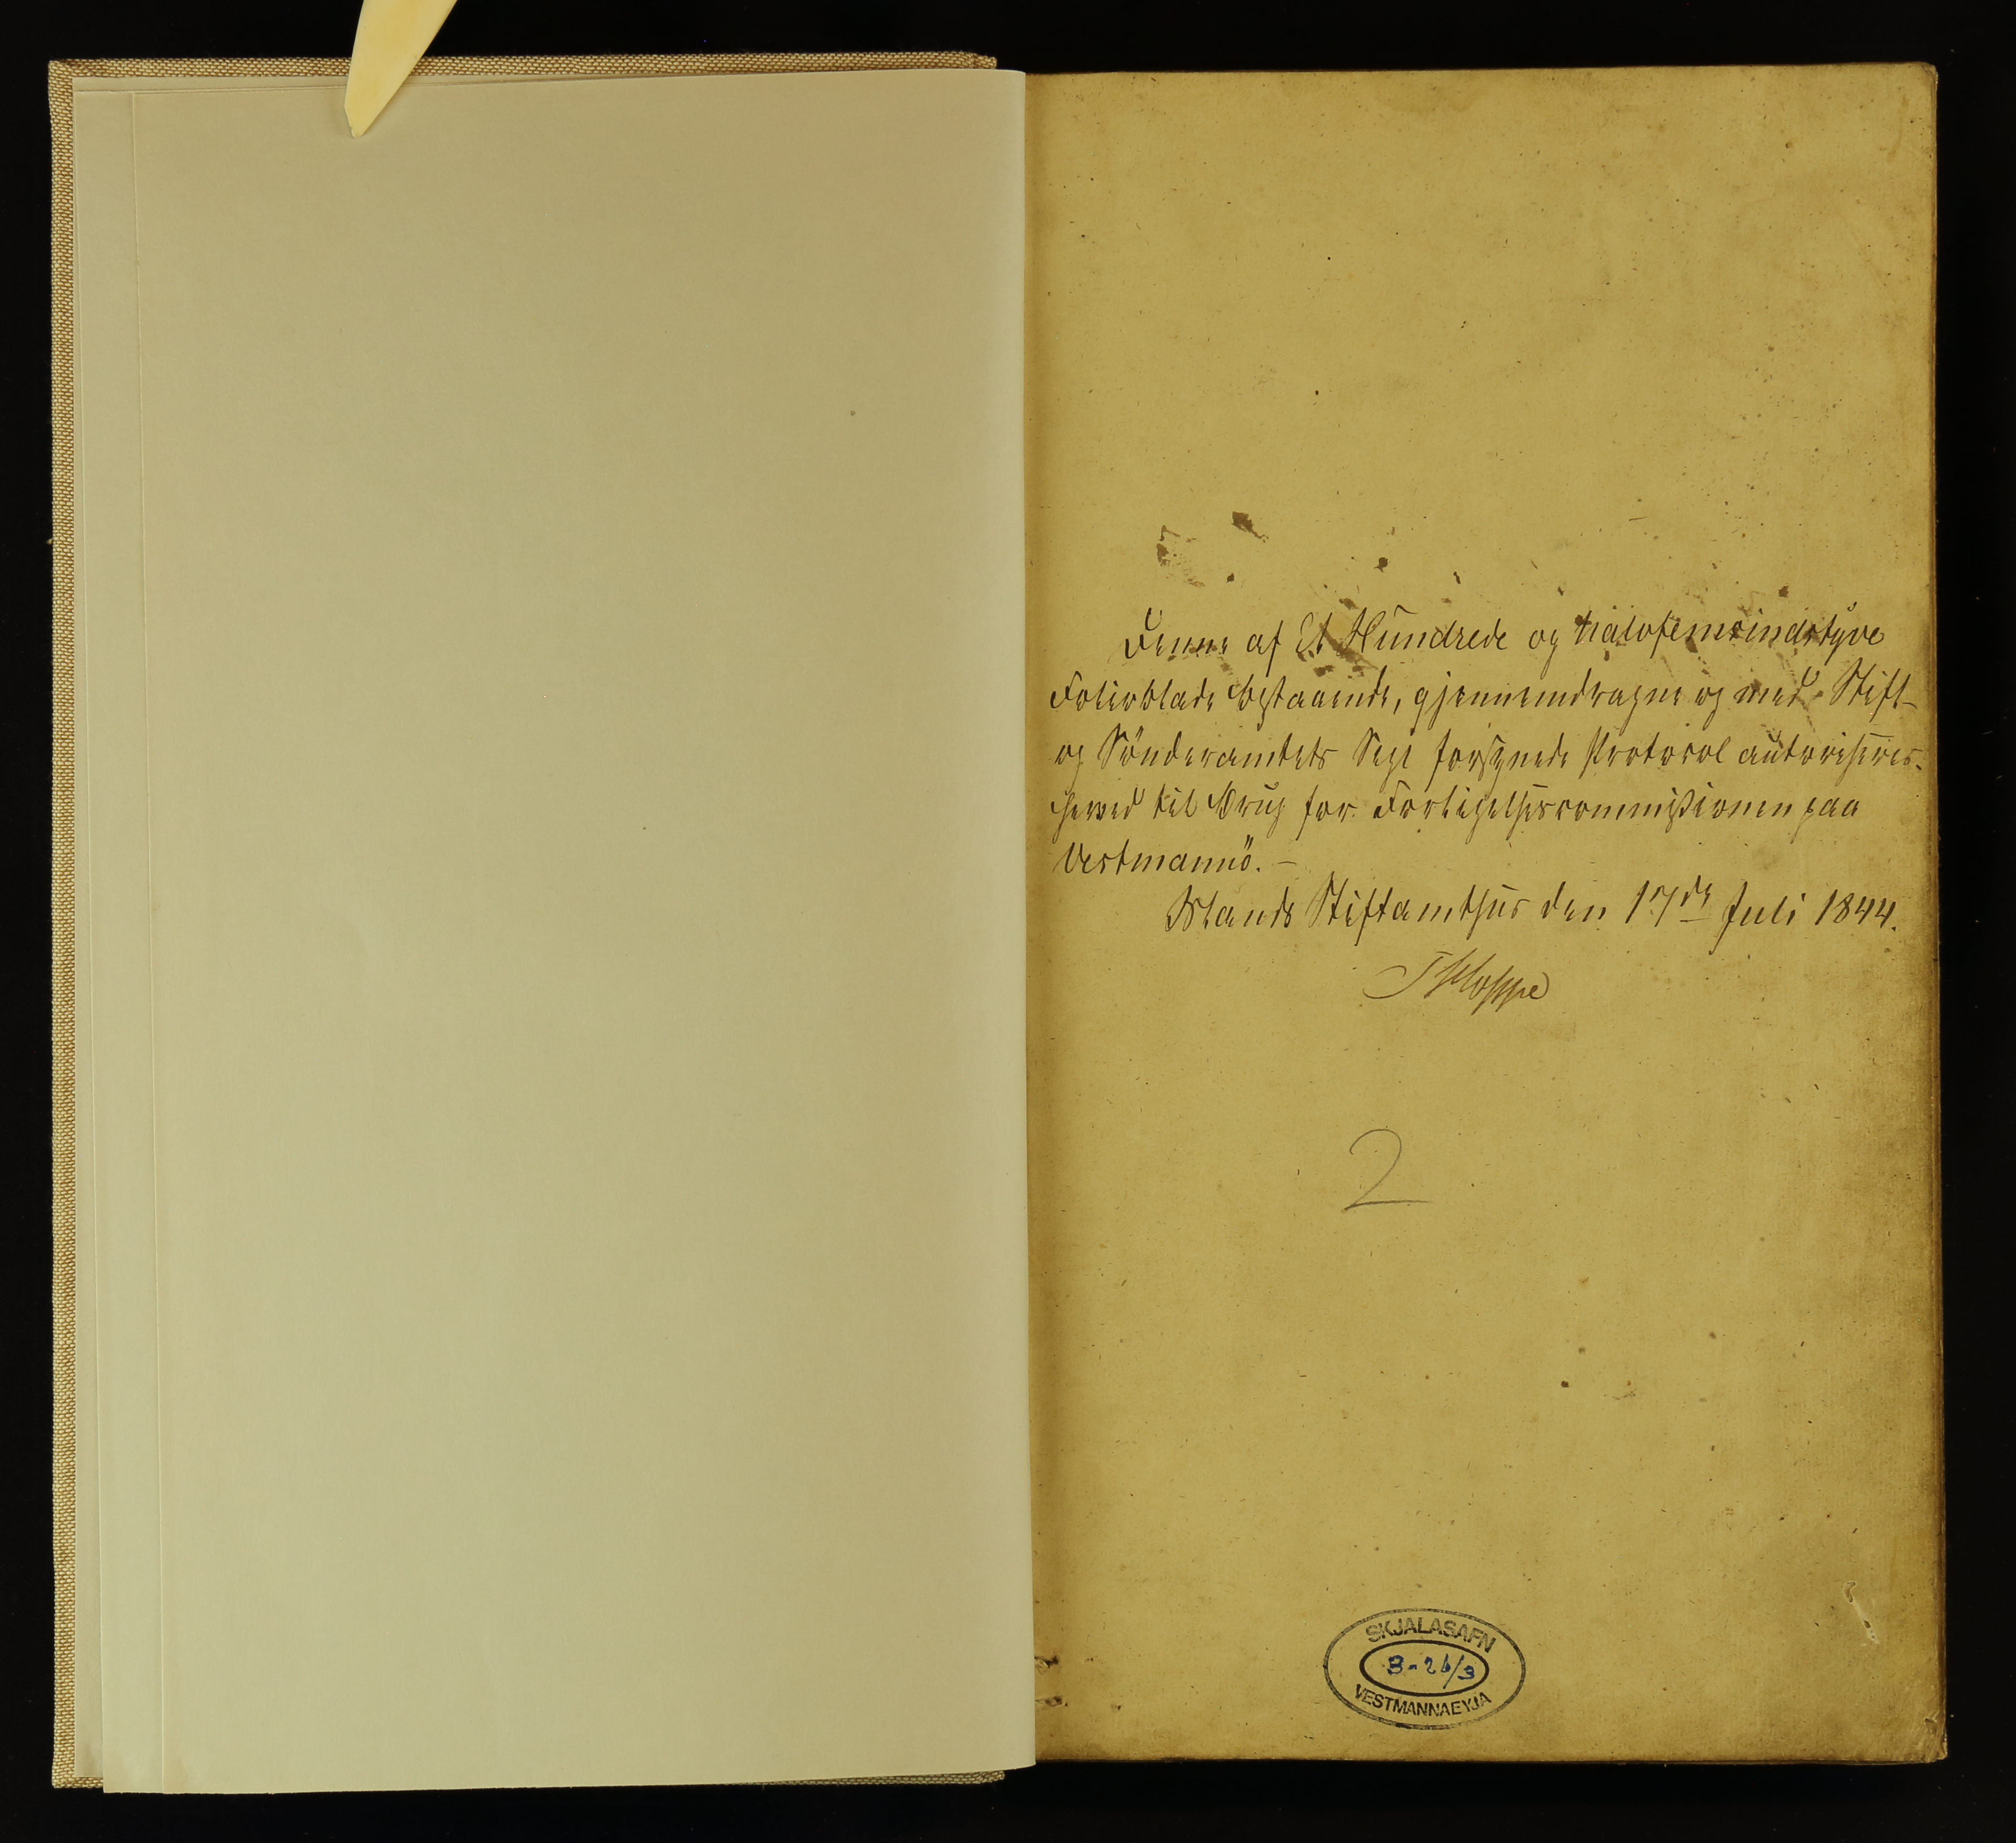 Denne af Et Hundrede og halvfemsindstyve
Folioblade bestaaende, gjennemdragne og med Stift-
og Sönderamtets Segl forsynede Protocol autoriseres
herved til Brug for Forligelsescommissionen paa
Vestmannö. –
Islands Stiftamthuus den 17de Juli 1844.
Th Hoppe
2
SKJALASAFN
B-26/3
VESTMANNAEYJA